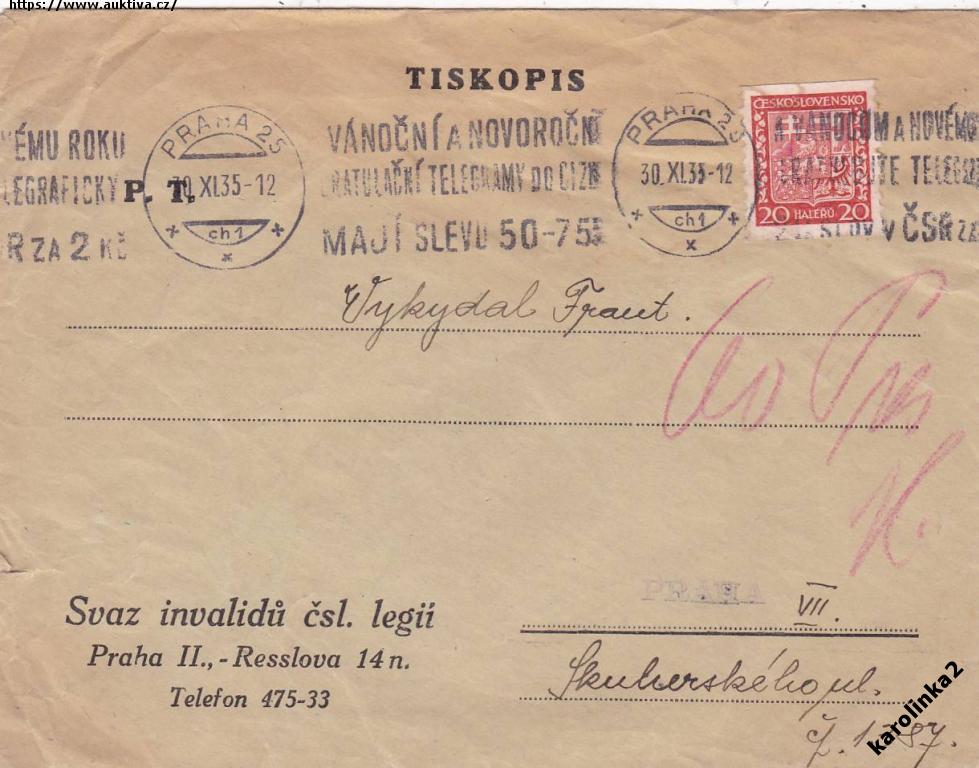 https://www.auktiva.cz/
TISKOPIS
ČESKOSLOVENSKO
20 HALÉŘŮ 20
PRAHA 25
30.XI.35-12
ch1
x
VÁNOČNÍ A NOVOROČNÍ
GRATULAČNÍ TELEGRAMY DO CIZIN
MAJÍ SLEVU 50-75%
PRAHA 25
30.XI.35-12
ch1
x
ÉMU ROKU
LEGRAFICKY
R ZA 2 Kč
K VÁNOCŮM A NOVÉM
TELEG
SLOV V ČSR ZA
P. T.
Vykydal Frant.
PRAHA VII.
Skuherského ul.
Svaz invalidů čsl. legií
Praha II.,-Resslova 14 n.
Telefon 475-33
karolinka2